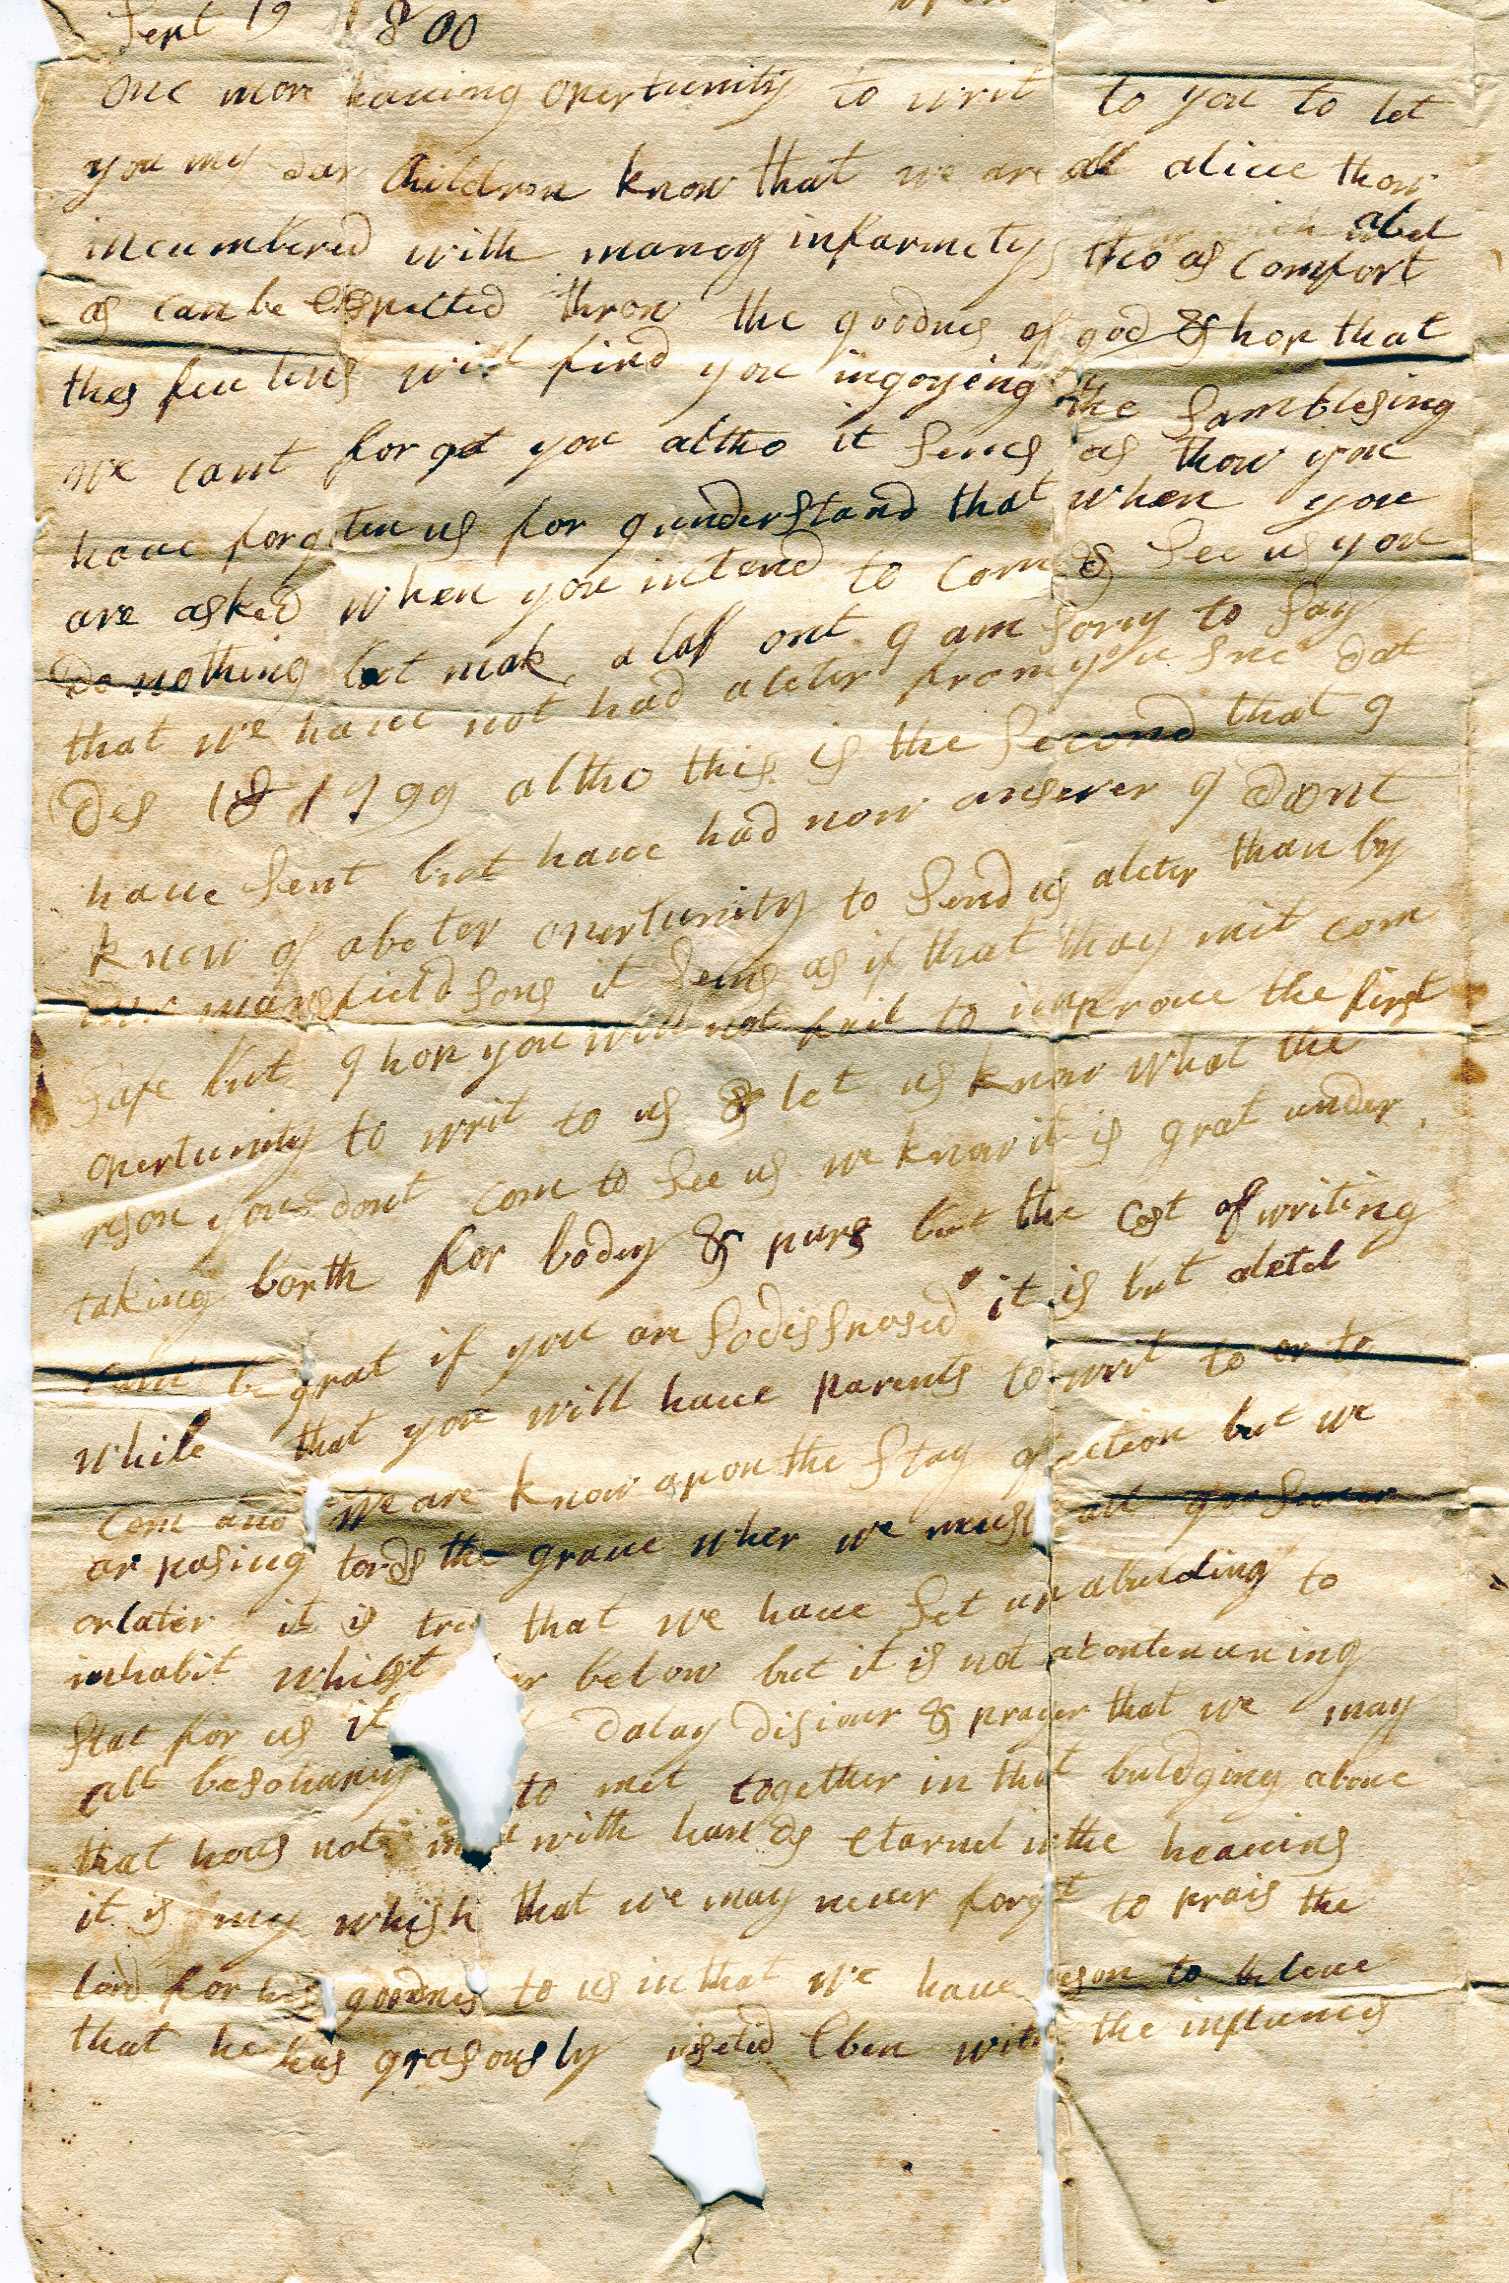 Sept 19 1800
one more haueing opertunity to writ to you to let
you my dear Children know that we are all aliue thow
incumbered with maney infarmetys tho as Comfort abel
as can be exspected throw the goodnes of god & hop that
thes few lins will find you ingoying the Sam blesing
we cant forget you altho it Sems as thow you
haue forgeten us for I understand that when you
are asked when you intend to Com & See us you
Do nothing but mak a laf ont I am Sorry to Say
that we haue not had aleter from you Sinc dat
Des 18 1799 altho this is the Second that I
haue Sent but haue had now anserer I dont
know of abeter opertunity to Send us aleter than by
mansfield Sons it Sems as if that may mit com
Safe but I hop you will not fail to improue the first
opertunity to writ to us & let us know what the
reson you dont com to See us we know it is grat under
taking borth for bodey & purs but the Cost of writing
be grat if you are So disposed it is but aletel
while that you will haue parents to writ to or to
Com and we are know apon the Stag of action but we
ar pasing tords the graue wher we must all go Sooner
or later it is tru that we haue Set up abulding to
inhabit whilst her below but it is not acontenuing
Stat for us it dalay disiour & prayer that we may
all be So hapey to met together in that buldging aboue
that hous not with hands etarnel in the heauens
it is my whish that we may neuer forget to prais the
lord for his goodnes to us in that we haue reson to beleue
that he has grasously viseted Eben with the influencs